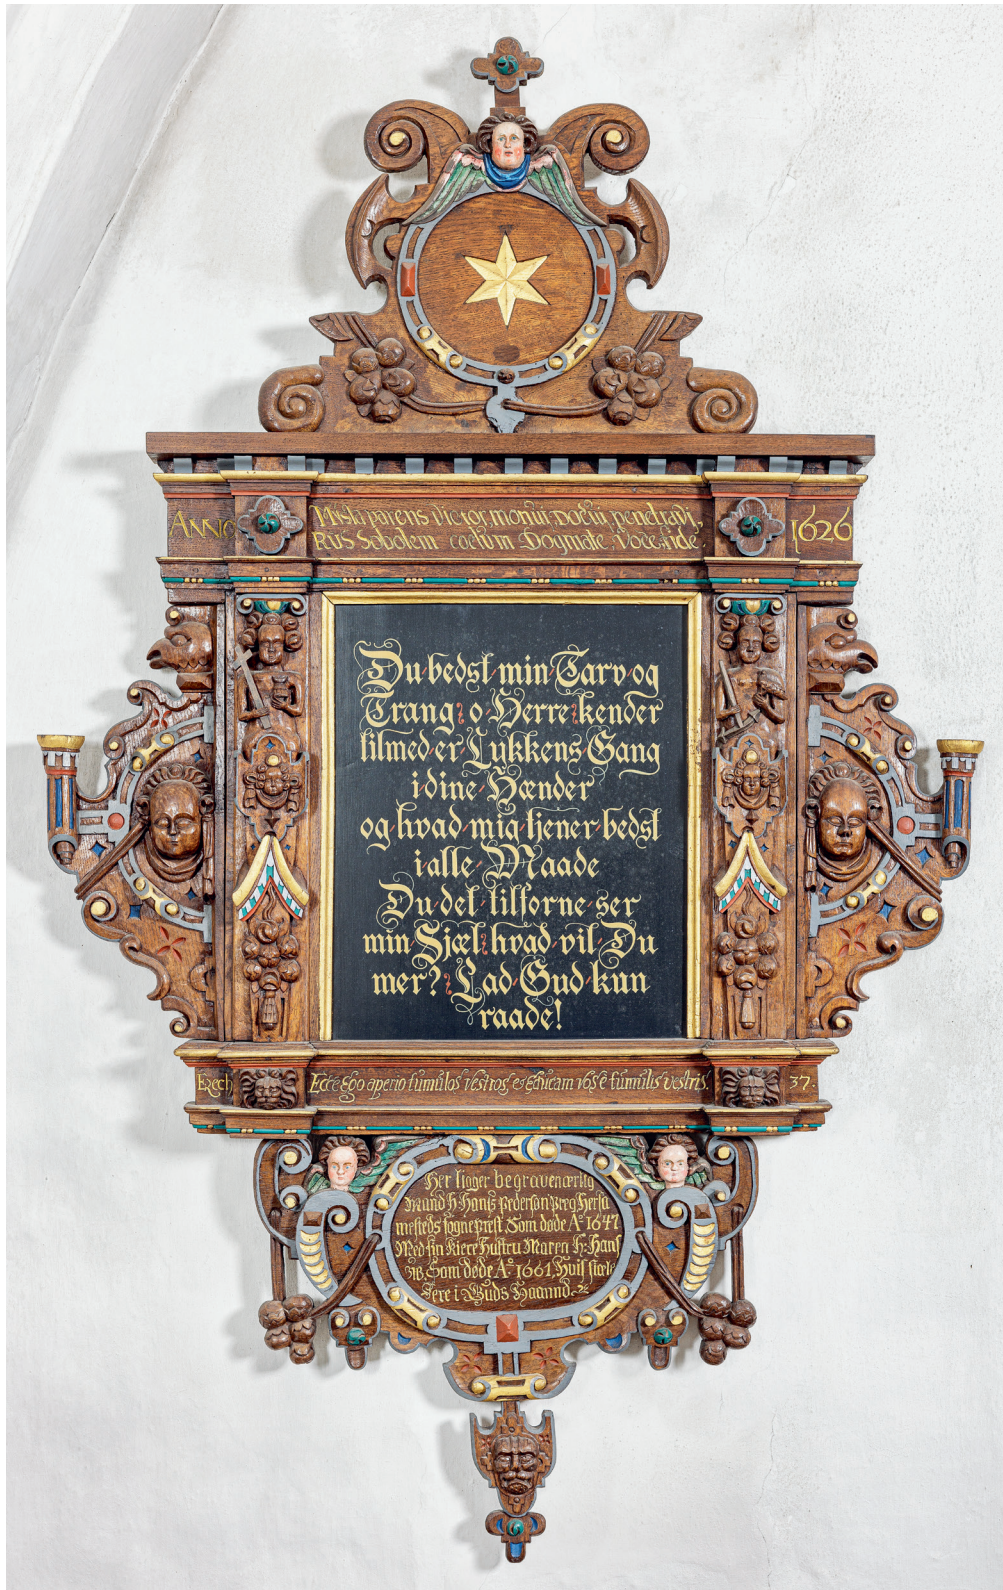 ANNO
Misit parens victor monuit docuit penetravit
1626
RUS Sobolem coelum Dogmate, Voce, fide
Du bedst min Tarv og
Trang, o Herre, kender
tilmed er Lykkens Gang
i dine Hænder
og hvad mig tjener bedst
i alle Maade
Du det tilforne ser
min Sjæl, hvad vil Du
mer? Lad Gud kun
raade!
Ezech
Ecce Ego aperio tumulos vestros, et Educam vos e tumulis vestris.
37.
Her ligger begraven ærlig
Mand H. Hans Pederson
mesteds sogneprest. Som døde Aº 1647
Med sin Kiere Hustru Maren H: Hans
Som døde Aº 1661, Huis siæle
Ere i Guds Haannd.